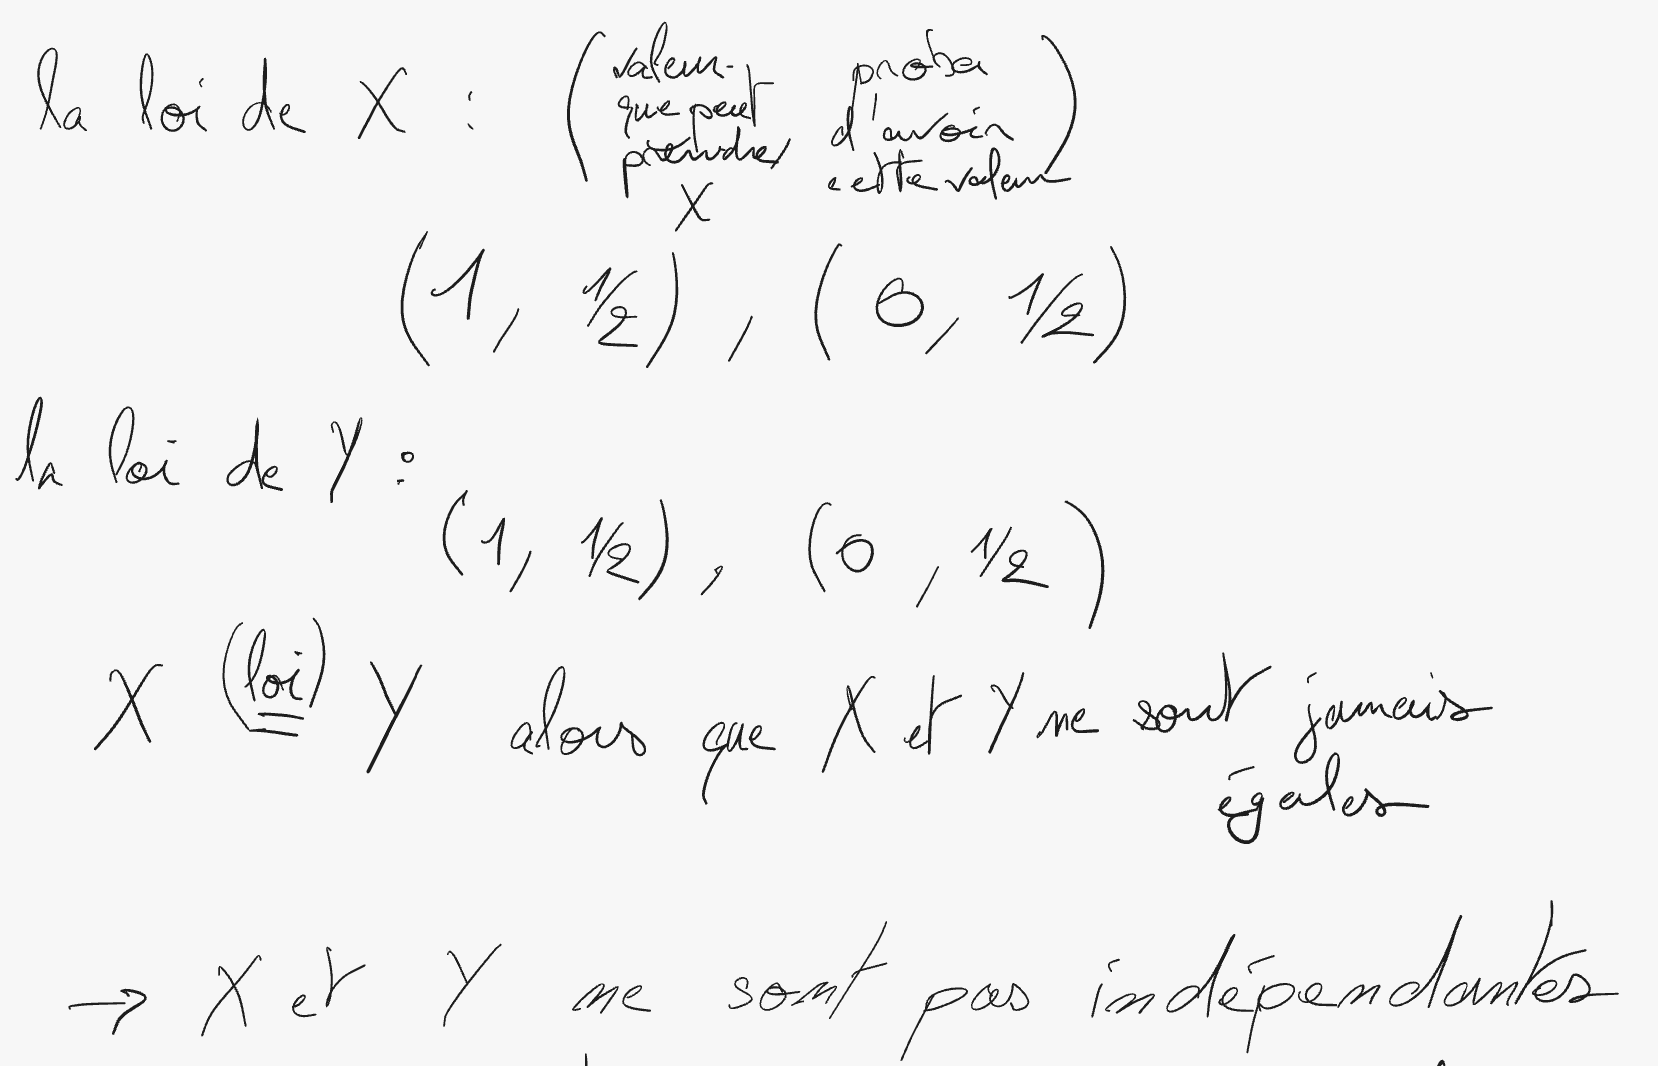 la loi de X : ( valeur que peut prendre X   proba d'avoir cette valeur )
(1, 1/2), (0, 1/2)
la loi de Y :
(1, 1/2), (0, 1/2)
X (loi) = Y alors que X et Y ne sont jamais
égales
→ X et Y ne sont pas indépendantes